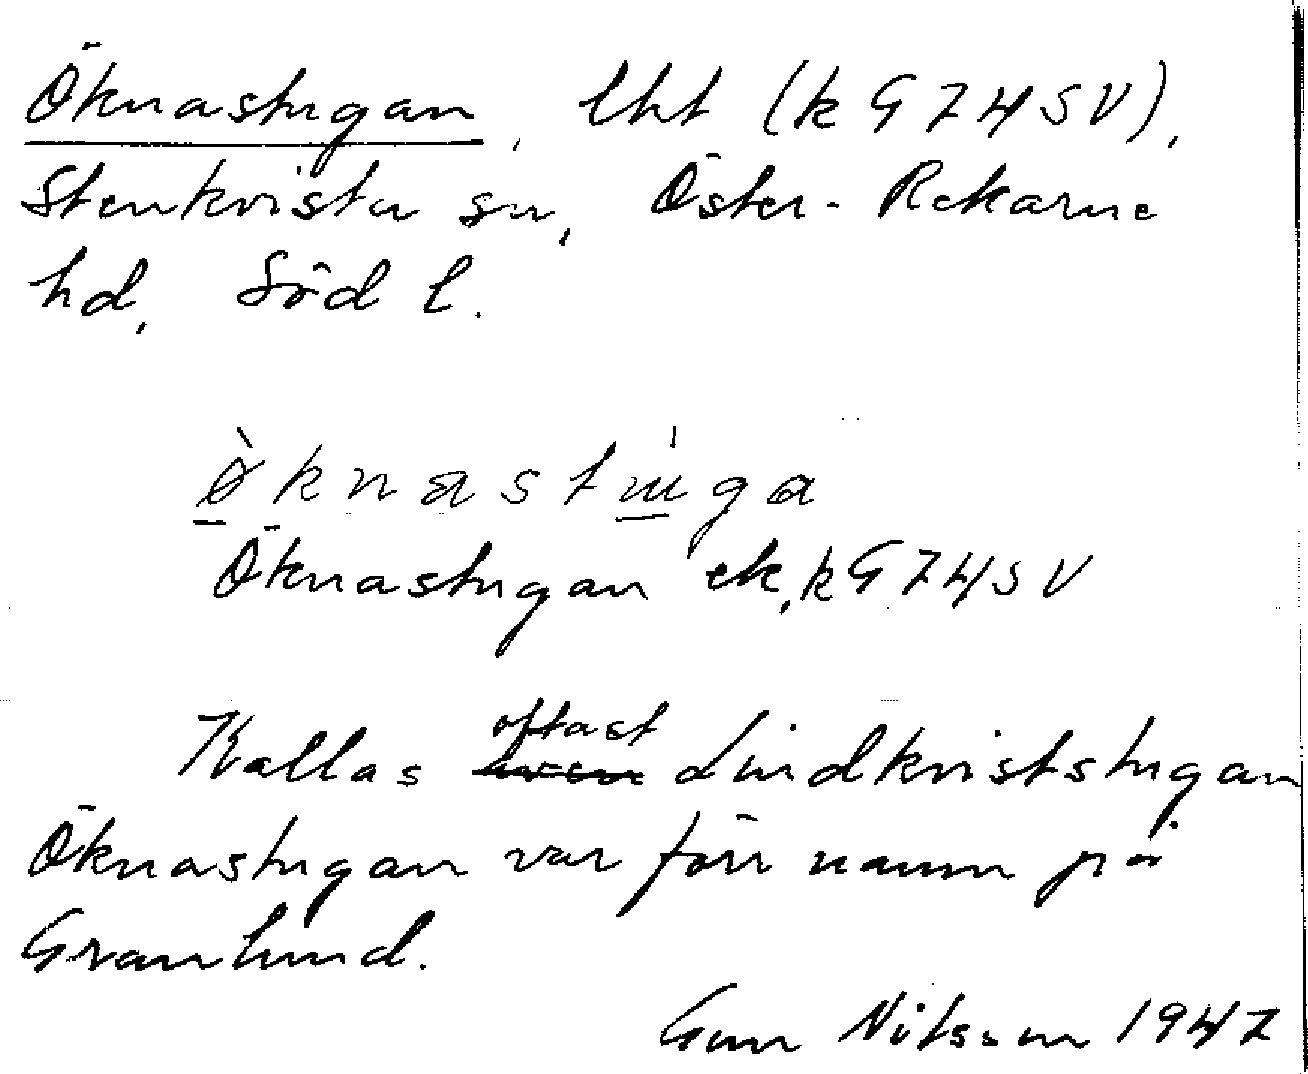 Öknastugan, lht (k G74SV),
Stenkvista sn, Öster-Rekarne
hd, Söd l.
ö̀knastu̍ga
Öknastugan ek, k G74SV
Kallas oftast Lindkviststugan
Öknastugan var förr namn på
Granlund.
Gun Nilsson 1947